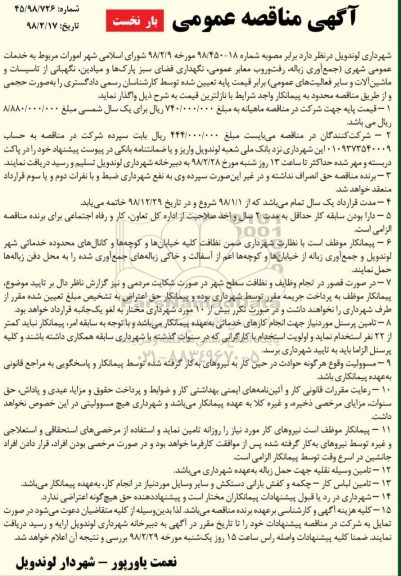 آگهی مناقصه عمومی
بار نخست
شماره: ۴۵/۹۸/۷۲۶
تاریخ: ۹۸/۲/۱۷
شهرداری لوندویل درنظر دارد برابر مصوبه شماره ۱۸-۹۸/۴۵۰ مورخه ۹۸/۲/۹ شورای اسلامی شهر امورات مربوط به خدمات
عمومی شهری (جمع‌آوری زباله، رفت‌وروب معابر عمومی، نگهداری فضای سبز پارک‌ها و میادین، نگهبانی از تاسیسات و
ماشین‌آلات و سایر فعالیت‌های عمومی) برابر قیمت پایه تعیین شده توسط کارشناس رسمی دادگستری را به‌صورت حجمی
و از طریق مناقصه محدود به پیمانکار واجد شرایط با نازلترین قیمت به شرح ذیل واگذار نماید.
۱ – قیمت پایه جهت شرکت در مناقصه ماهیانه به مبلغ ۷۴۰/۰۰۰/۰۰۰ ریال برای یک سال شمسی مبلغ ۸/۸۸۰/۰۰۰/۰۰۰
ریال می باشد.
۲ – شرکت‌کنندگان در مناقصه می‌بایست مبلغ ۴۴۴/۰۰۰/۰۰۰ ریال بابت سپرده شرکت در مناقصه به حساب
۰۱۰۹۳۷۳۵۴۰۰۰۹ این شهرداری نزد بانک ملی شعبه لوندویل واریز و یا ضمانتنامه بانکی در پیوست پیشنهاد خود را در پاکت
دربسته و مهر شده حداکثر تا ساعت ۱۳ روز شنبه مورخ ۹۸/۲/۲۸ به دبیرخانه شهرداری لوندویل تسلیم و رسید دریافت نمایند.
۳ – برنده مناقصه حق انصراف نداشته و در غیر این‌صورت سپرده وی به نفع شهرداری ضبط و با نفرات دوم و یا سوم قرارداد
منعقد خواهد شد.
۴ – مدت قرارداد یک سال تمام می‌باشد که از ۹۸/۱/۱ شروع و در تاریخ ۹۸/۱۲/۲۹ خاتمه می‌یابد.
۵ – دارا بودن سابقه کار حداقل به مدت ۲ سال و اخذ صلاحیت از اداره کل تعاون، کار و رفاه اجتماعی برای برنده مناقصه
الزامی است.
۶ – پیمانکار موظف است با نظارت شهرداری ضمن نظافت کلیه خیابان‌ها و کوچه‌ها و کانال‌های محدوده خدماتی شهر
لوندویل و جمع‌آوری زباله از خیابان‌ها و کوچه‌ها اعم از آسفالت و خاکی زباله‌های جمع‌آوری شده را به محل دفن زباله‌ها
حمل نمایند.
۷ – در صورت قصور در انجام وظایف و نظافت سطح شهر در صورت شکایت مردمی و نیز گزارش ناظر دال بر تایید موضوع،
پیمانکار موظف به پرداخت جریمه مقرر توسط شهرداری بوده و پیمانکار حق اعتراض به تشخیص مبلغ تعیین شده مقرر از
طرف شهرداری را نخواهند داشت و در صورت تکرر بیش از ۱۰ مورد شهرداری مختار به لغو یک‌جانبه قرارداد خواهد بود.
۸ – تامین پرسنل موردنیاز جهت انجام کارهای خدماتی به‌عهده پیمانکار می‌باشد و با توجه به سابقه امر، پیمانکار نباید کمتر
از ۲۲ نفر استخدام نماید و اولویت استخدام با کارگرانی که در سنوات گذشته با شهرداری سابقه همکاری داشته باشند و کلیه
پرسنل الزاما باید به تایید شهرداری برسد.
۹ – مسوولیت وقوع هرگونه حوادث در حین کار به نیروهای به‌کار گرفته شده توسط پیمانکار و پاسخگویی به مراجع قانونی
به‌عهده پیمانکاری باشد.
۱۰ – رعایت مقررات قانونی کار و آئین‌نامه‌های ایمنی بهداشتی کار و ضوابط و پرداخت حقوق و مزایا، عیدی و پاداش، حق
سنوات، مزایای مرخصی ذخیره، و غیره کلا به عهده پیمانکار می‌باشد و شهرداری هیچ مسوولیتی در این خصوص نخواهد
داشت.
۱۱ – پیمانکار موظف است نیروهای کار مورد نیاز را روزانه تامین نماید و استفاده از مرخصی‌های استحقاقی و استعلاجی
و غیره توسط نیروهای به‌کار گرفته شده پس از موافقت کارفرما خواهد بود و در صورت مرخصی بودن افراد، قرار دادن افراد
جانشین در اسرع وقت توسط پیمانکار الزامی است.
۱۲ – تامین وسیله نقلیه جهت حمل زباله به‌عهده شهرداری می‌باشد.
۱۳ – تامین لباس کار – چکمه و کفش بارانی دستکش و سایر وسایل موردنیاز در انجام کار، به‌عهده پیمانکار می‌باشد.
۱۴ – شهرداری در رد یا قبول پیشنهادات پیمانکاران مختار است و پیشنهاددهنده حق هیچ‌گونه اعتراضی ندارد.
۱۵ – کلیه هزینه آگهی و کارشناسی برعهده برنده مناقصه می‌باشد. لذا بدین‌وسیله از کلیه متقاضیان دعوت می‌شود در صورت
تمایل به شرکت در مناقصه پیشنهادات خود را تا تاریخ مقرر در آگهی به دبیرخانه شهرداری لوندویل ارایه و رسید دریافت
نمایند. ضمنا کلیه پیشنهادات واصله راس ساعت ۱۵ روز یک‌شنبه مورخه ۹۸/۲/۲۹ بررسی و نتیجه آن اعلام خواهد شد.
نعمت یاورپور – شهردار لوندویل
۰۲۱-۸۸۳۴۹۶۷۰-۵